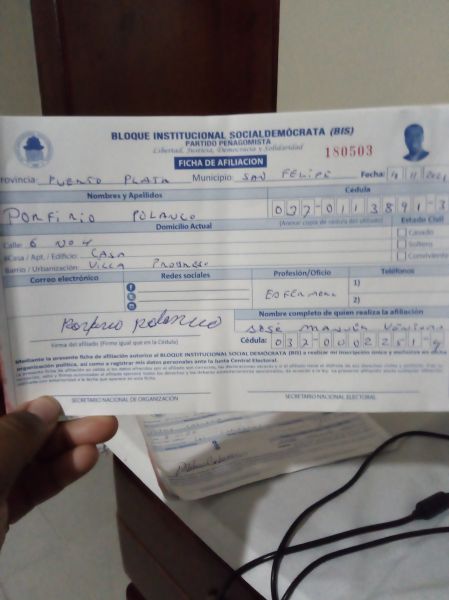 BLOQUE INSTITUCIONAL SOCIALDEMÓCRATA (BIS)
PARTIDO PEÑAGOMISTA
Libertad, Justicia, Democracia y Solidaridad
FICHA DE AFILIACION
180503
Provincia: PUERTO PLATA Municipio: SAN FELIPE Fecha:
Nombres y Apellidos Cédula
PORFIRIO POLANCO 037-0113891-3
Domicilio Actual (Anexar copia de cédula del afiliado) Estado Civil
Calle: 6 NO 4 Casado
#Casa / Apt. / Edificio: CASA Soltero
Barrio / Urbanización: VILLA PROGRESO Conviviente
Correo electrónico Redes sociales Profesión/Oficio Teléfonos
ENFERMERO 1)
2)
Porfirio Polanco
Nombre completo de quien realiza la afiliación
JOSE MANUEL
Firma del afiliado (Firme igual que en la Cédula) Cédula: 037-0002251-9
Mediante la presente ficha de afiliación autorizo al BLOQUE INSTITUCIONAL SOCIALDEMOCRATA (BIS) a realizar mi inscripción única y exclusiva en dicha
organización política, así como a registrar mis datos personales ante la Junta Central Electoral.
SECRETARIO NACIONAL DE ORGANIZACIÓN SECRETARIO NACIONAL ELECTORAL